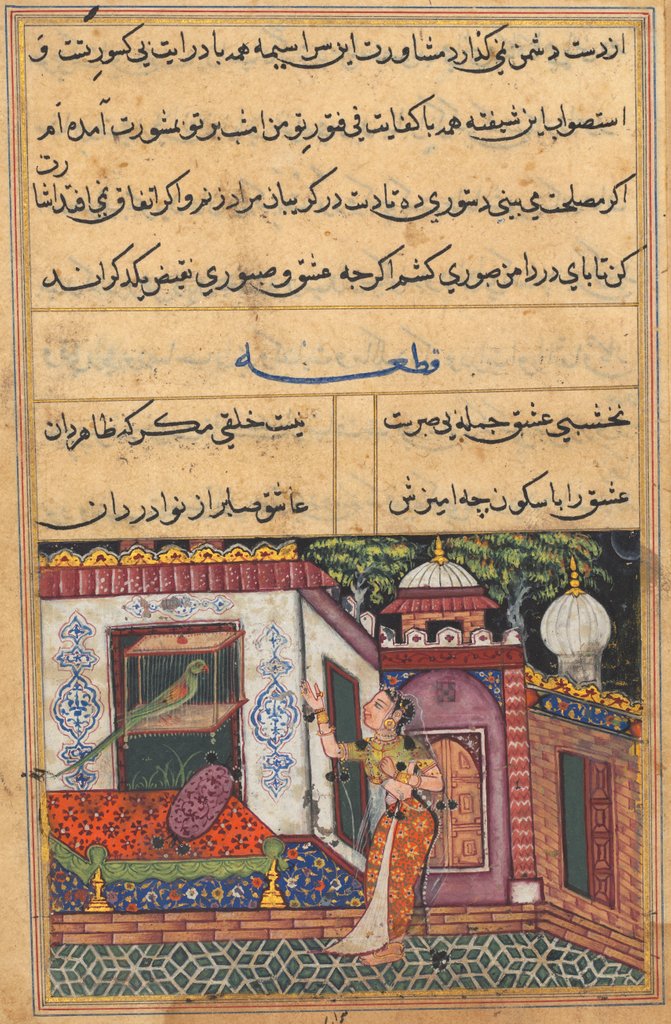 از دست دشمن نمی گذارد مشاورت این سراسیمه همه بادرایت بی کسور تست و
استصواب این شیفته همه باکفایت فی فتور تو من امشب بر تو بمشورت آمده ام
اکر مصلحت می بینی دستوری ده تا دست در کریبان مراد زنم و اکر اتفاق نمی افتد اشارت
کن تا پای در دامن صبوری کشم اکرجه عشق و صبوری نقیض یکدکراند
قطعه
نخشبی عشق جمله بی صبریست
نیست خلقی مکر که ظاهر دان
عشق را با سکون چه امیزش
عاشق صابر از نوادر دان